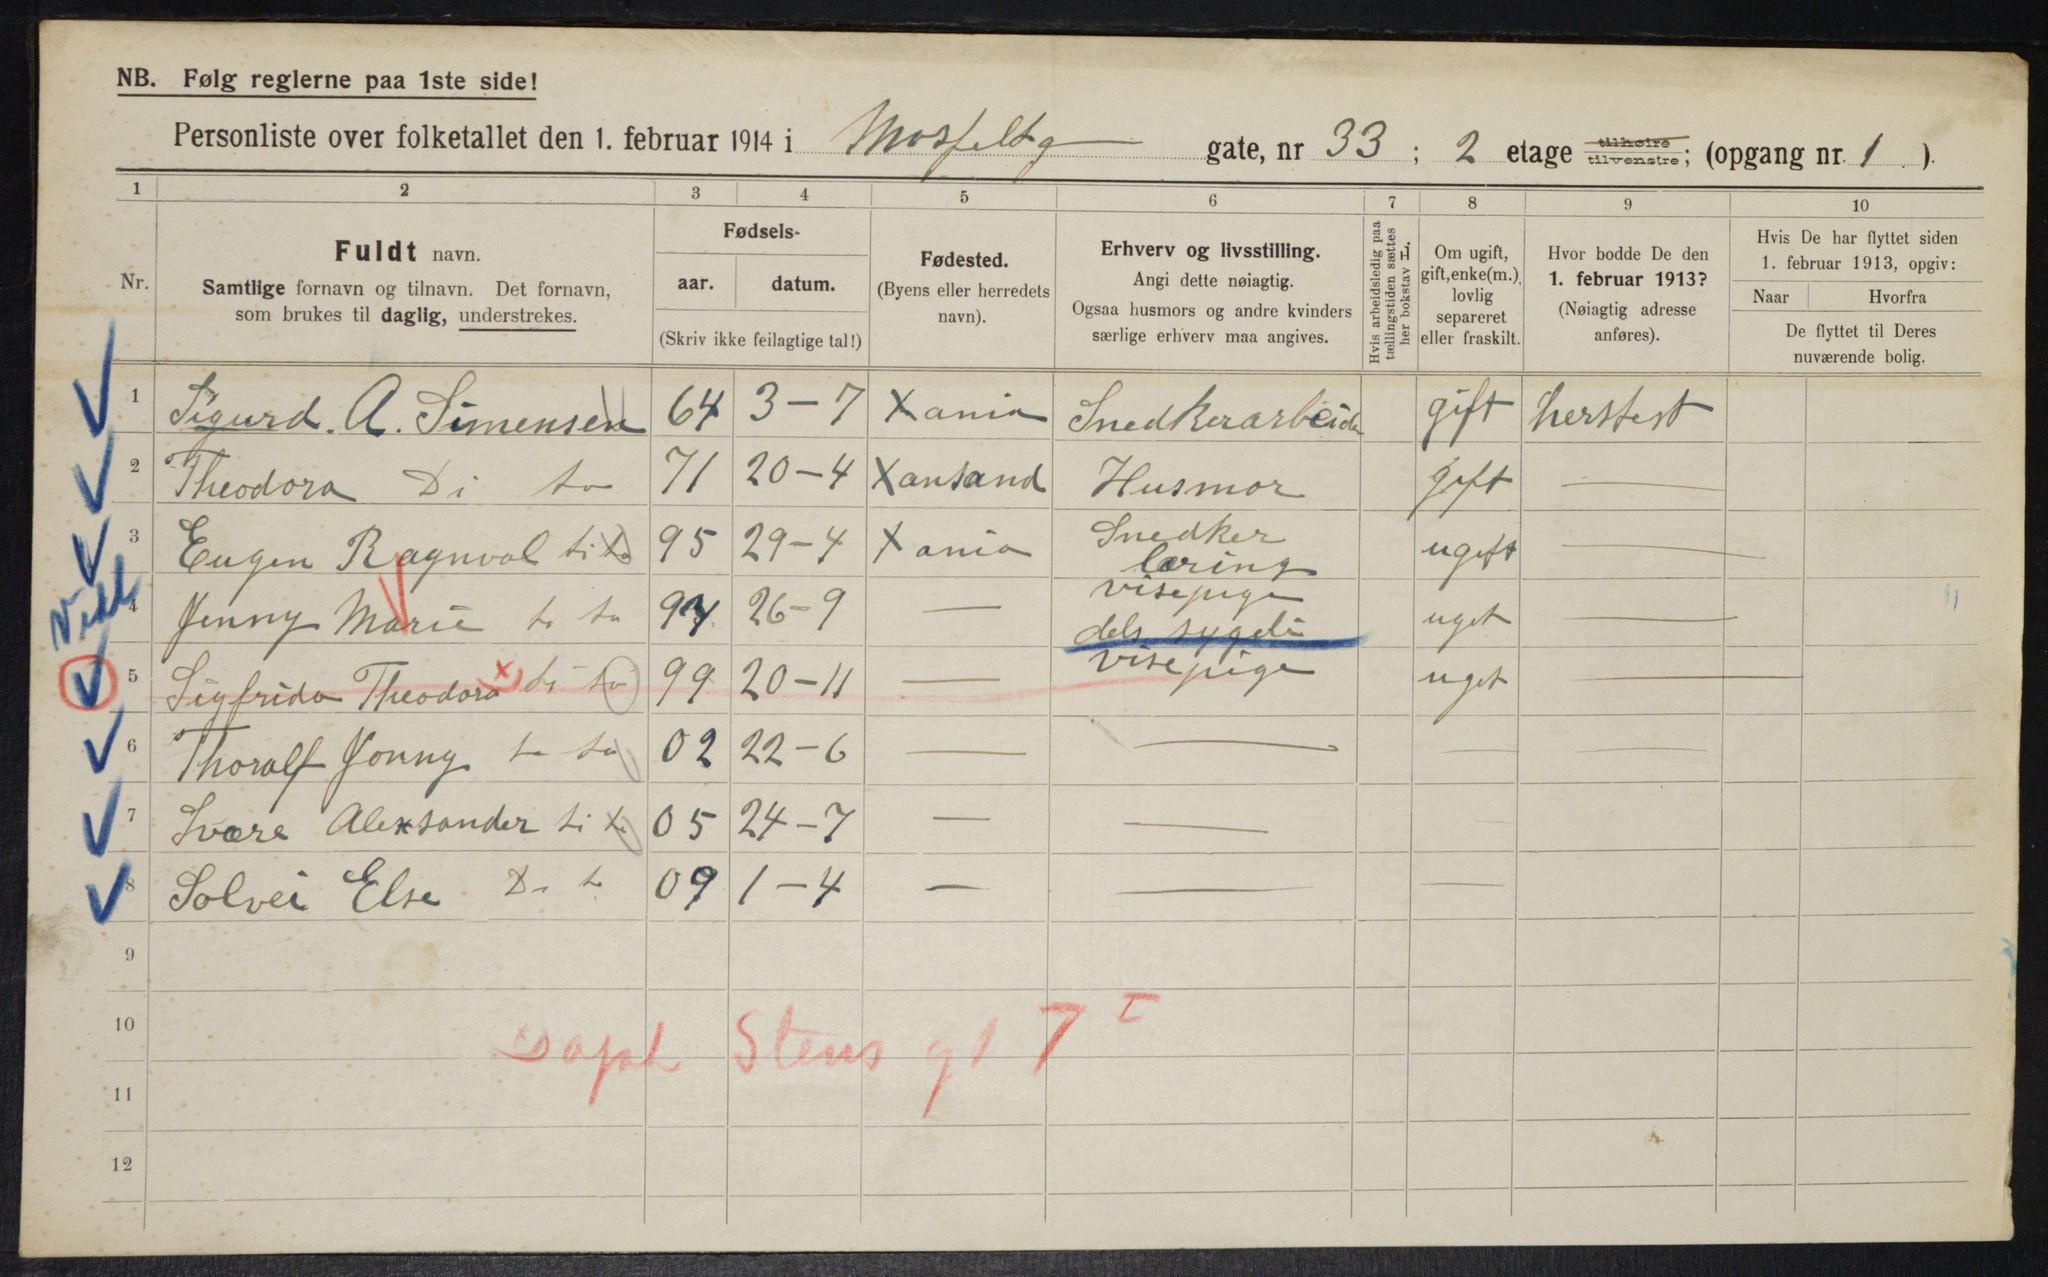 NB. Følg reglerne paa 1ste side!
Personliste over folketallet den 1. februar 1914 i Mosfeltg gate, nr 33 ; 2 etage tilhøire tilvenstre; (opgang nr. 1 ).
1 2 3 4 5 6 7 8 9 10
Nr.
Fuldt navn.
Samtlige fornavn og tilnavn. Det fornavn,
som brukes til daglig, understrekes.
Fødsels-
aar. datum.
(Skriv ikke feilagtige tal!)
Fødested.
(Byens eller herredets
navn).
Erhverv og livsstilling.
Angi dette nøiagtig.
Ogsaa husmors og andre kvinders
særlige erhverv maa angives.
Hvis arbeidsledig paa
tællingstiden sættes
her bokstav L.
Om ugift,
gift, enke(m.),
lovlig
separeret
eller fraskilt.
Hvor bodde De den
1. februar 1913?
(Nøiagtig adresse
anføres).
Hvis De har flyttet siden
1. februar 1913, opgiv:
Naar Hvorfra
De flyttet til Deres
nuværende bolig.
1 Sigurd. A. Simensen 64 3-7 Xania Snedkerarbeider gift herstest
2 Theodora Di to 71 20-4 Xansand Husmor gift —
3 Eugen Ragnval di to 95 29-4 Xania Snedker læring ugift —
4 Jenny Marie di to 26-9 — visepige dels sygdi uget —
5 Sigfrida Theodora x di to 99 20-11 — visepige uget —
6 Thoralf Jonny di to 02 22-6 — — — —
7 Svære Alexsander di to 05 24-7 — —
8 Solvei Else Di to 09 1-4 — — —
9
10
11
12
Steus gt 7 I